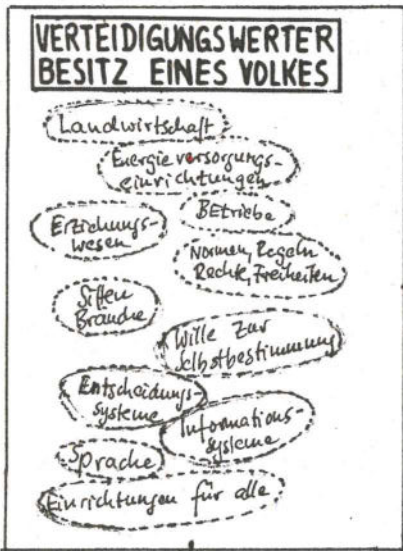 VERTEIDIGUNGSWERTER
BESITZ EINES VOLKES
Landwirtschaft
Energieversorgungs-
einrichtungen
Betriebe
Erziehungs-
wesen
Normen, Regeln
Rechte, Freiheiten
Sitten
Bräuche
Wille zur
Selbstbestimmung
Entscheidungs-
systeme
Informations-
systeme
Sprache
Einrichtungen für alle